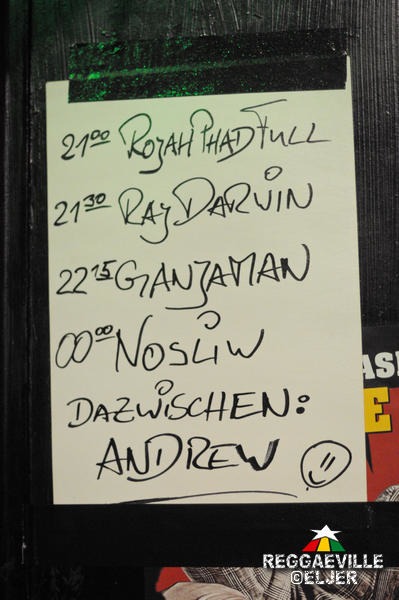 21⁰⁰ ROJAH PHAD FULL
21³⁰ RAY DARWIN
22¹⁵ GANJAMAN
00⁰⁰ NOSLIW
DAZWISCHEN:
ANDREW
ASI
E
REGGAEVILLE
©ELJER